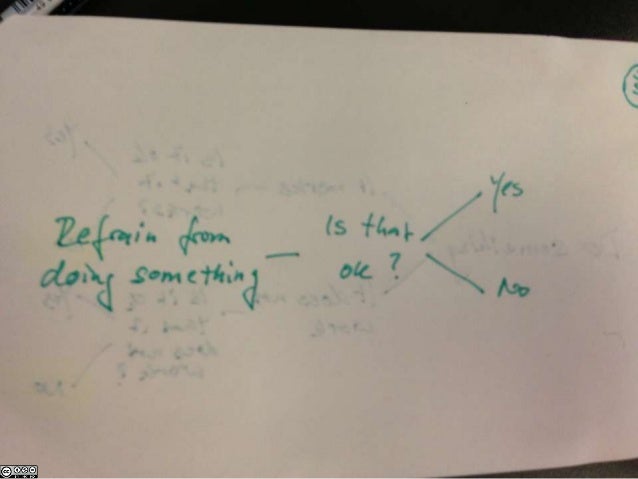 Refrain from
doing something
Is that
ok ?
Yes
No